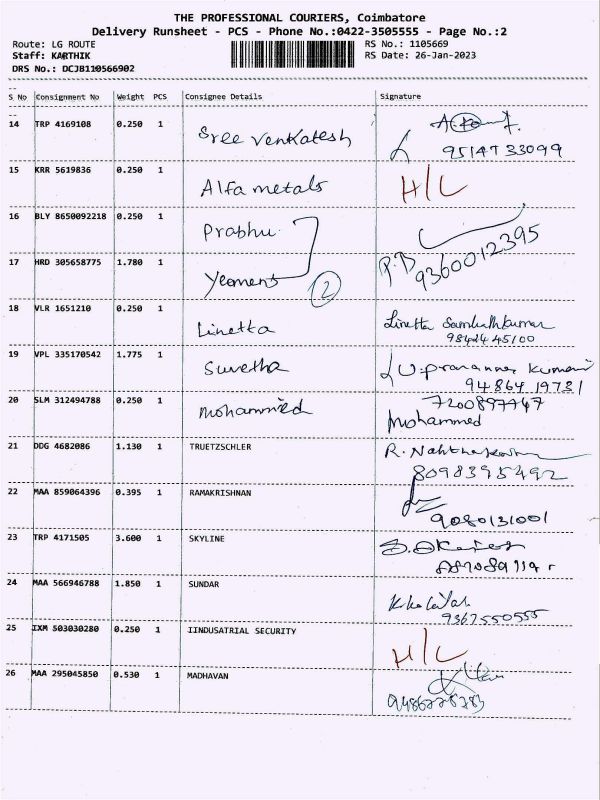 THE PROFESSIONAL COURIERS, Coimbatore
Delivery Runsheet - PCS - Phone No.:0422-3505555 - Page No.:2
Route: LG ROUTE RS No.: 1105669
Staff: KARTHIK RS Date: 26-Jan-2023
DRS No.: DCJB110566902
S No Consignment No Weight PCS Consignee Details Signature
14 TRP 4169108 0.250 1 Sree Venkatesh
9514733099
15 KRR 5619836 0.250 1 Alfa metals H/L
16 BLY 8650092218 0.250 1 Prabhu
17 HRD 305658775 1.780 1 Yeomens P.B 9360012395
2
18 VLR 1651210 0.250 1 Linetta Linetta
19 VPL 335170542 1.775 1 Swetha
20 SLM 312494788 0.250 1 Mohammed 7200897447
Mohammed
21 DDG 4682086 1.130 1 TRUETZSCHLER R.
8098395492
22 MAA 859064396 0.395 1 RAMAKRISHNAN
9080131001
23 TRP 4171505 3.600 1 SKYLINE
24 MAA 566946788 1.850 1 SUNDAR
9367550555
25 IXM 503030280 0.250 1 IINDUSATRIAL SECURITY H/L
26 MAA 295045850 0.530 1 MADHAVAN